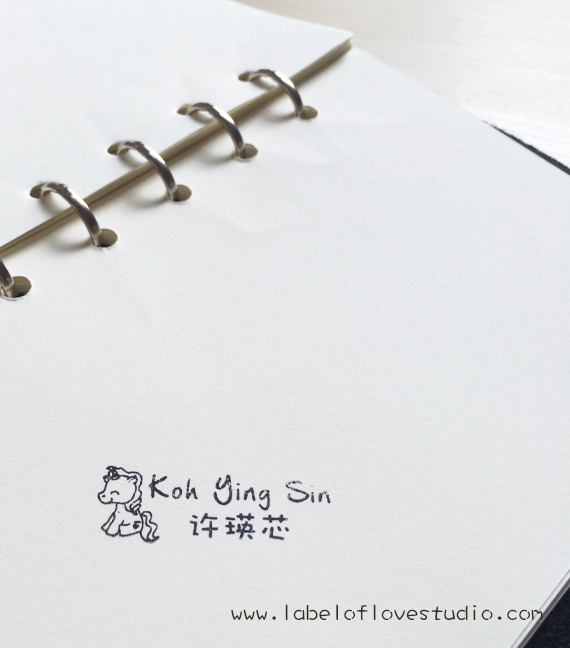 Koh Ying Sin
许瑛芯
www.labeloflovestudio.com